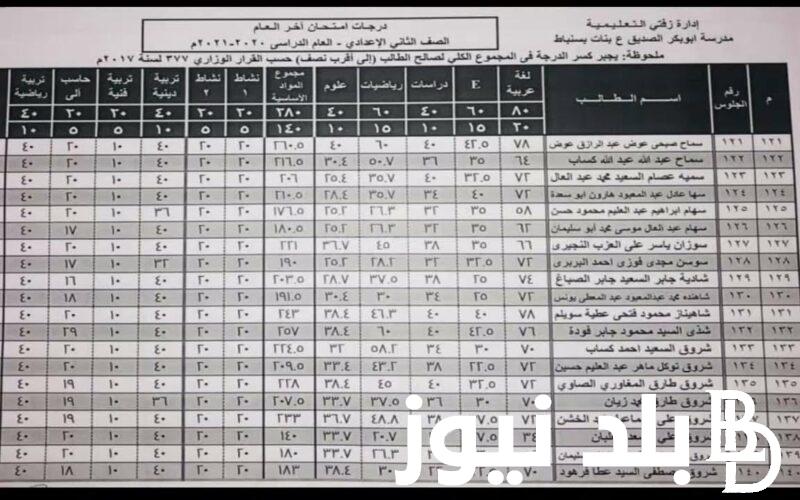 إدارة زفتي التعليمية
مدرسة ابوبكر الصديق ع بنات بسنباط
درجات امتحان آخر العام
الصف الثاني الإعدادي - العام الدراسى ٢٠٢٠-٢٠٢١م
ملحوظة: يجبر كسر الدرجة فى المجموع الكلي لصالح الطالب (إلى أقرب نصف) حسب القرار الوزاري ٣٧٧ لسنة ٢٠١٧م
م رقم الجلوس اسم الطالب لغة عربية E دراسات رياضيات علوم مجموع المواد الأساسية نشاط ١ نشاط ٢ تربية دينية تربية فنية حاسب آلى تربية رياضية
٨٠ ٦٠ ٤٠ ٦٠ ٤٠ ٢٨٠ ٢٠ ٢٠ ٤٠ ٢٠ ٢٠ ٤٠
٢٠ ١٥ ١٠ ١٥ ١٠ ١٤٠ ٥ ٥ ١٠ ٥ ٥ ١٠
١٢١ ١٢١ سماح صبحى عوض عبد الرازق عوض ٧٨ ٤٢.٥ ٤٠ ٦٠ ٤٠ ٢٦٠.٥ ٢٠ ٢٠ ٤٠ ١٠ ٢٠ ٤٠
١٢٢ ١٢٢ سماح عبد الله عبد الله كساب ٦٤ ٣٥ ٣٦ ٥٠.٧ ٣٠.٤ ٢١٦.٥ ٢٠ ٢٠ ٤٠ ١٠ ٢٠ ٤٠
١٢٣ ١٢٣ سميه عصام السعيد محمد عبد العال ٧٢ ٣٢.٥ ٤٠ ٣٥.٧ ٢٥.٢ ٢٠٦ ٢٠ ٢٠ ٤٠ ١٠ ٢٠ ٤٠
١٢٤ ١٢٤ سها عادل عبد المعبود هارون ابو سعدة ٧٢ ٤٠ ٣٤ ٣٥.٧ ٢٨.٤ ٢١٠.٥ ٢٠ ٢٠ ٤٠ ١٠ ٢٠ ٤٠
١٢٥ ١٢٥ سهام ابراهيم عبد العليم محمود حسن ٥٨ ٣٥ ٣٢ ٢٦.٣ ٢٥.٢ ١٧٦.٥ ٢٠ ٢٠ ٣٦ ١٠ ٢٠ ٤٠
١٢٦ ١٢٦ سهام عبد العال موسى محمد ابو سليمان ٦٢ ٣٥ ٣٢ ٢٦.٣ ٢٥.٢ ١٨٠.٥ ٢٠ ٢٠ ٤٠ ١٠ ١٧ ٤٠
١٢٧ ١٢٧ سوزان ياسر على العزب النجيرى ٦٦ ٣٥ ٣٨ ٤٥ ٣٦.٧ ٢٢١ ٢٠ ٢٠ ٤٠ ١٠ ٢٠ ٤٠
١٢٨ ١٢٨ سوسن مجدى فوزى احمد البربرى ٧٢ ٣٢.٥ ٣٢ ٢٨.٢ ٢٥.٢ ١٩٠ ٢٠ ٢٠ ٣٢ ١٠ ١٧ ٤٠
١٢٩ ١٢٩ شادية جابر السعيد جابر الصباغ ٧٤ ٢٥ ٣٨ ٣٧.٥ ٢٨.٧ ٢٠٣.٥ ٢٠ ٢٠ ٤٠ ١٠ ١٦ ٤٠
١٣٠ ١٣٠ شاهنده محمد عبدالمعبود عبد المعطى يونس ٧٢ ٢٥ ٣٤ ٣٠ ٣٠.٤ ١٩١.٥ ٢٠ ٢٠ ٤٠ ١٠ ١٨ ٤٠
١٣١ ١٣١ شاهيناز محمود فتحى عطية سويلم ٧٨ ٤٠ ٤٠ ٤٦.٣ ٣٨.٤ ٢٠ ٢٠ ٤٠ ١٠ ٢٠ ٤٠
١٣٢ ١٣٢ شذى السيد محمود جابر فودة ٧٦ ٤٢.٥ ٤٠ ٦٠ ٣٨.٤ ٢٥٧ ٢٠ ٢٠ ٤٠ ١٠ ٢٩ ٤٠
١٣٣ ١٣٣ شروق السعيد احمد كساب ٧٠ ٣٠ ٣٤ ٥٨.٢ ٣٢ ٢٢٤.٥ ٢٠ ٢٠ ٤٠ ١٠ ٢٠ ٤٠
١٣٤ ١٣٤ شروق توكل ماهر عبد العليم حسين ٧٢ ٢٢.٥ ٣٨ ٤٣.٢ ٣٣.٤ ٢٠٩.٥ ٢٠ ٢٠ ٤٠ ١٠ ٢٠ ٤٠
١٣٥ ١٣٥ شروق طارق المغاوري الصاوي ٧٢ ٣٢.٥ ٤٠ ٤٥ ٣٨.٤ ٢٢٨ ٢٠ ٢٠ ٤٠ ١٠ ١٩ ٤٠
١٣٦ شروق طارق زيان ٧٠ ٣٦ ٣٧.٥ ٣٣.٦ ٢٠٧.٥ ٢٠ ٢٠ ٣٦ ١٠ ١٩ ٤٠
شروق على الخشن ٧٢ ٣٨ ٤٨.٨ ٣٦.٧ ٢٣٣ ٢٠ ٢٠ ٤٠ ١٠ ١٩ ٤٠
شروق ٣٤ ٢٠.٧ ٣٣.٧ ١٤٠ ٢٠ ٢٠ ٤٠ ١٠ ٢٠ ٤٠
شروق سليمان ٣٣.٤ ١٨٠ ٢٠ ٢٠ ٤٠ ١٠ ٢٠ ٤٠
١٤٠ شروق مصطفى السيد عطا فرهود ٧٠ ٣٠ ٣٨.٤ ١٨٣ ٢٠ ٢٠ ٤٠ ١٠ ١٨ ٤٠
بلد نيوز
B